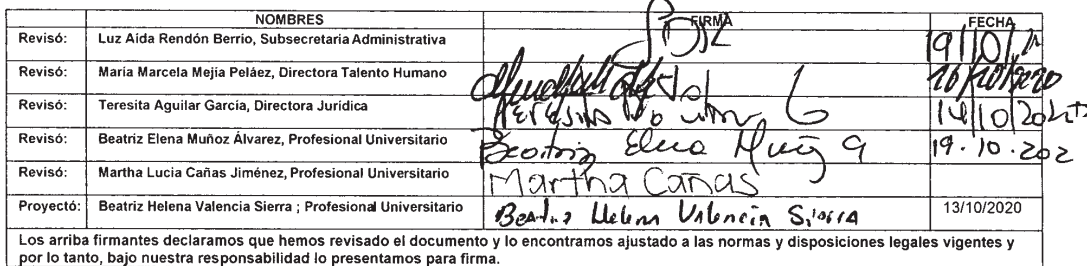 NOMBRES FIRMA FECHA
Revisó: Luz Aida Rendón Berrio, Subsecretaria Administrativa
Revisó: María Marcela Mejía Peláez, Directora Talento Humano 16/10/2020
Revisó: Teresita Aguilar García, Directora Jurídica
Revisó: Beatriz Elena Muñoz Álvarez, Profesional Universitario Beatriz Elena 19.10.202
Revisó: Martha Lucia Cañas Jiménez, Profesional Universitario Martha Cañas
Proyectó: Beatriz Helena Valencia Sierra ; Profesional Universitario Beatriz Helena Valencia Sierra 13/10/2020
Los arriba firmantes declaramos que hemos revisado el documento y lo encontramos ajustado a las normas y disposiciones legales vigentes y
por lo tanto, bajo nuestra responsabilidad lo presentamos para firma.